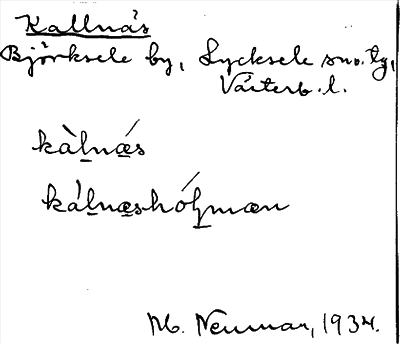 Kallnäs
Björksele by, Lycksele sno. tg,
Västerb. l.
kàl̲nǽ̲s
kál̲næ̲shól̲mæn
M. Neuman, 1934.